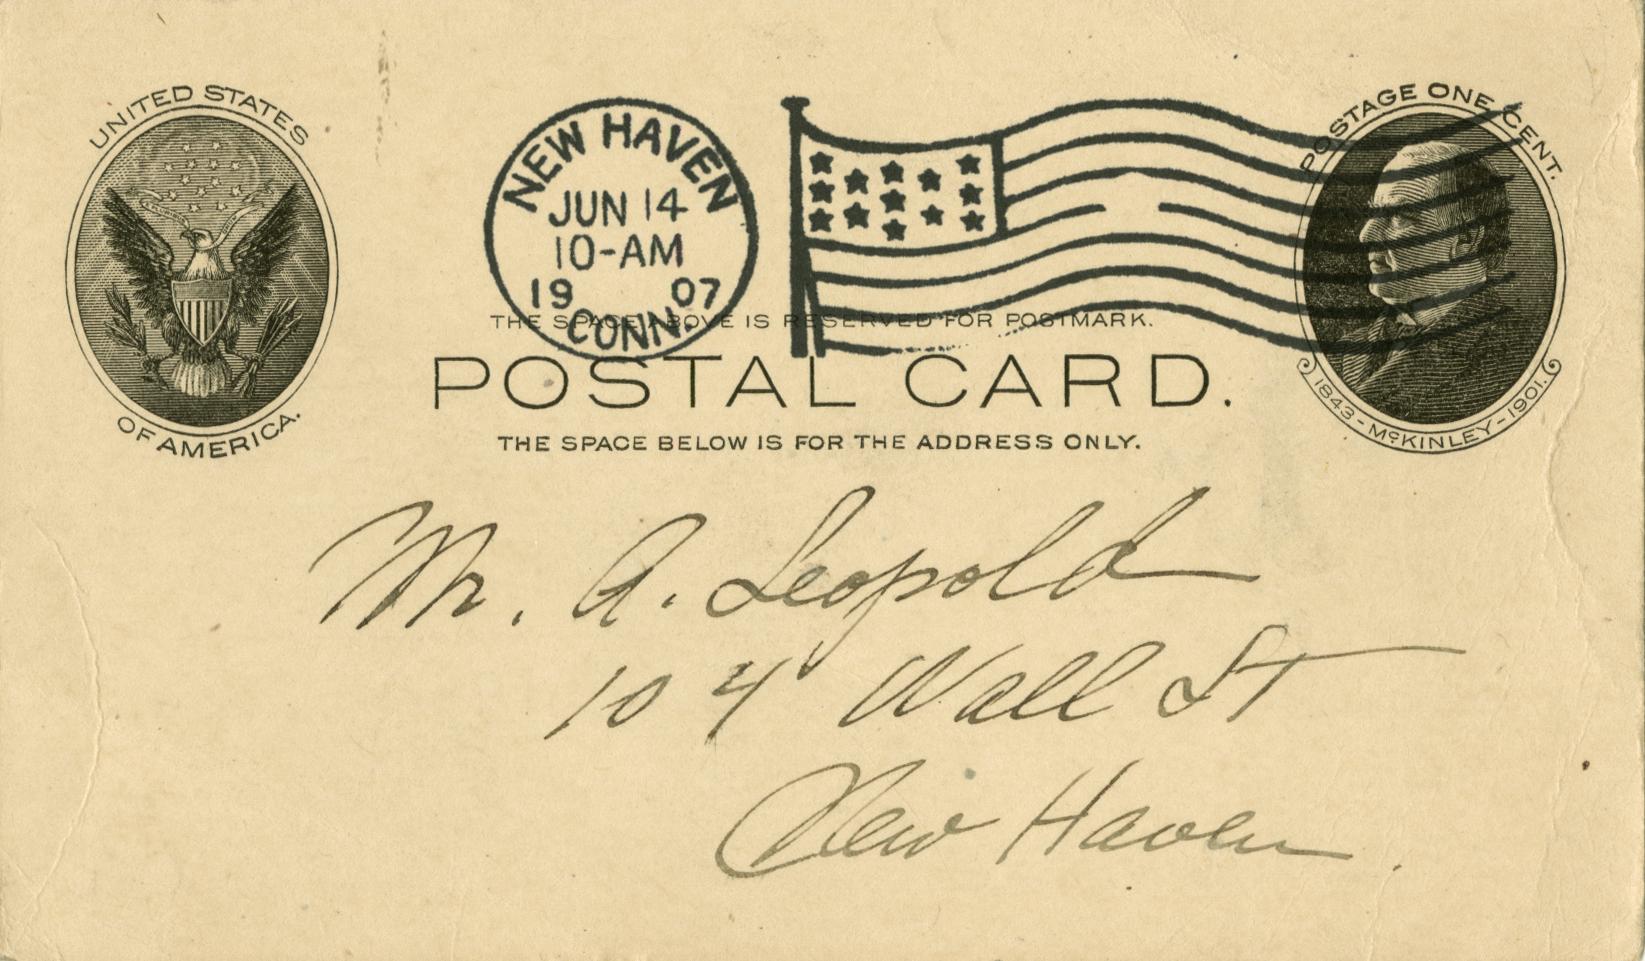 UNITED STATES
OF AMERICA.
NEW HAVEN
JUN 14
10-AM
19 07
CONN.
POSTAGE ONE CENT.
1843-McKINLEY-1901.
THE SPACE ABOVE IS RESERVED FOR POSTMARK.
POSTAL CARD.
THE SPACE BELOW IS FOR THE ADDRESS ONLY.
Mr. A. Leopold
104 Wall St
New Haven.